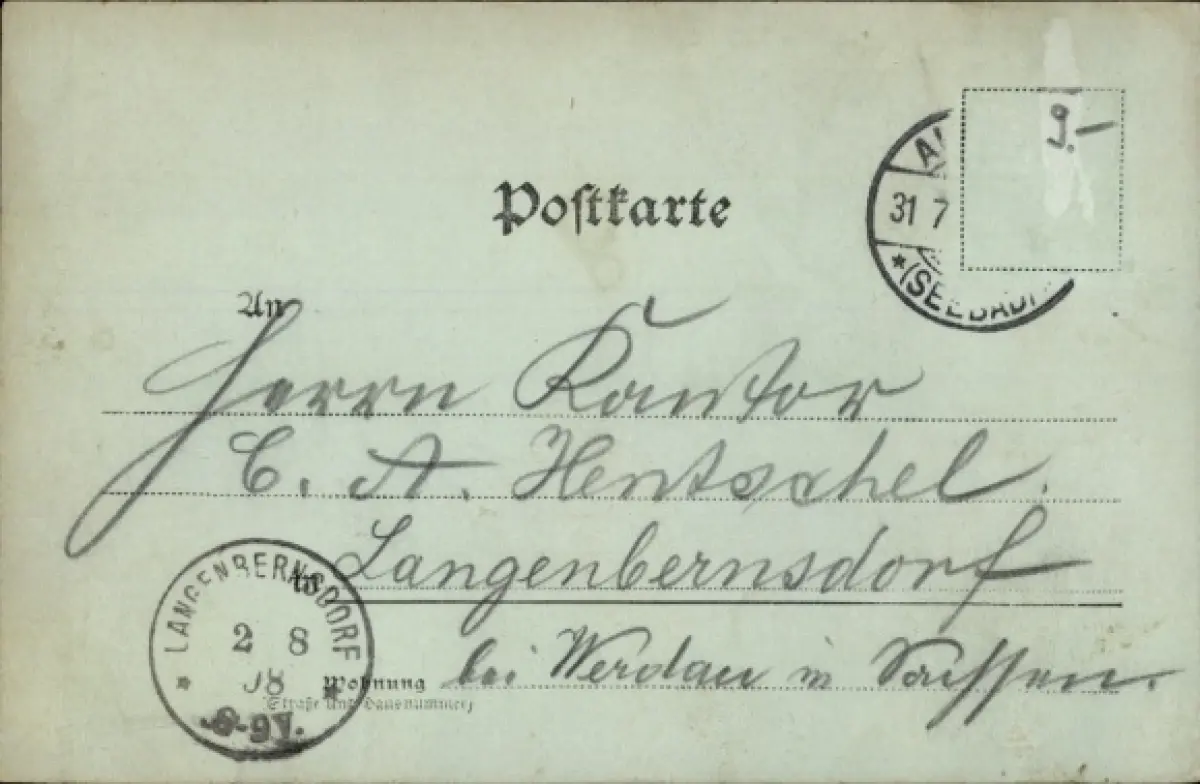 9.-
31 7
(SEEBAD)
Postkarte
An
Herrn Kantor
C. A. Hentschel.
in Langenbernsdorf
bei Werdau in Sachsen.
Wohnung
(Straße und Hausnummer)
LANGENBERNSDORF
2 8
98
8-9V.